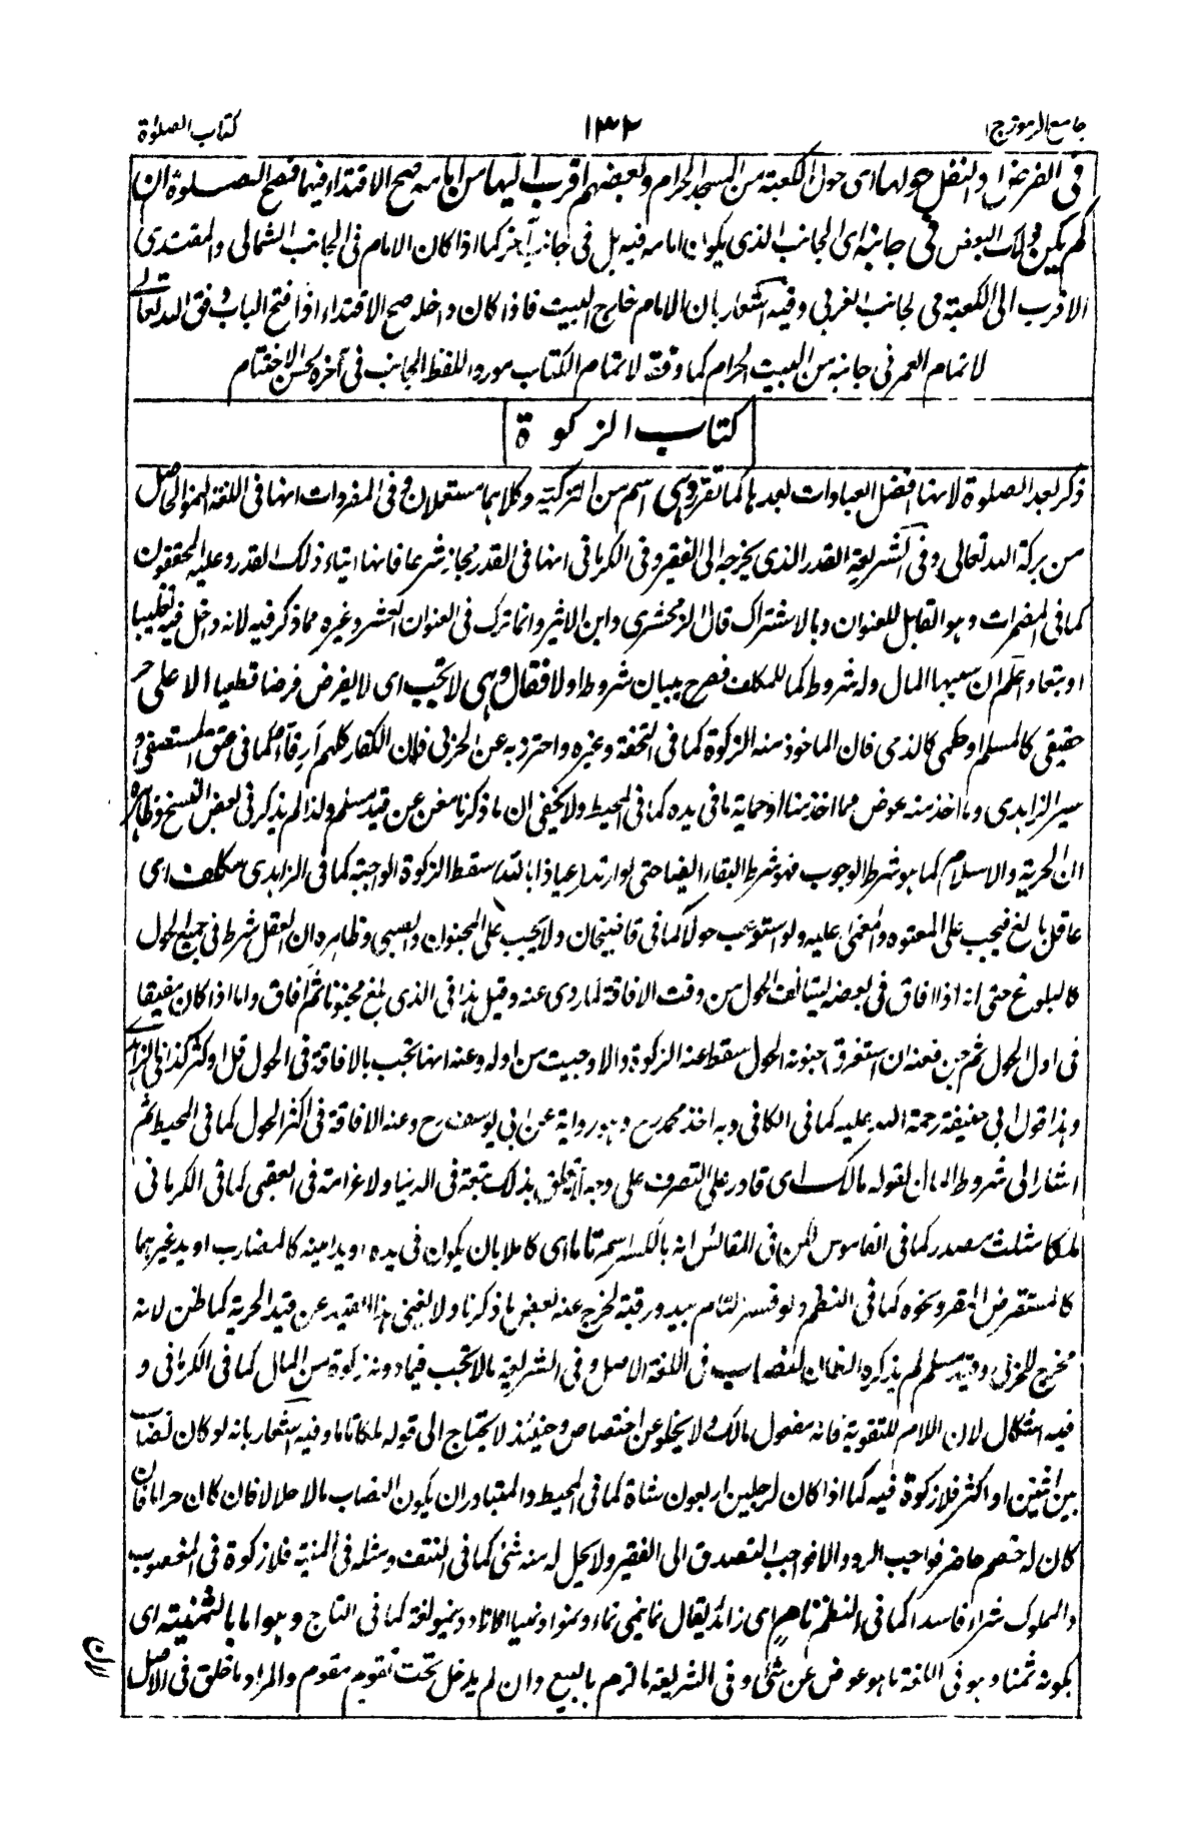 جامع الرموز ج ا
١٣٢
كتاب الصلوٰة
فى الفرض او النفل حولها اى حول الكعبة من المسجد الحرام وبعضهم اقرب اليها من امامه صح الاقتداء فيها فتصح الصلوة ان
لم يكن ذلك البعض فى جانبه اى الجانب الذى يكون امامه فيه بل فى جانب آخر كما اذا كان الامام فى الجانب الشمالى والمقتدى
الاقرب الى الكعبة فى الجانب الغربى وفيه اشعار بان الامام خارج البيت فاذا كان داخله صح الاقتداء اذا فتح الباب وفق الله تعالى
لاتمام العمر فى جانبه من البيت الحرام كما وفقه لاتمام الكتاب مورد اللفظ الجانب فى آخره لحسن الاختتام
كتاب الزكوة
ذكر بعد الصلوة لانها افضل العبادات بعدها كما تقرر وهى اسم من التزكية وكلاهما مستعملان وفى المفردات انها فى اللغة النمو الحاصل
من بركة الله تعالى وفى الشريعة القدر الذى يخرجه الى الفقير وفى الكرمانى انها فى القدر مجاز شرعا فانها ايتاء ذلك القدر وعليه المحققون
كما فى المضمرات وهو القابل للعنوان وبالاشتراك قال الزمخشرى وابن الاثير وانما ترك فى العنوان العشر وغيره مما ذكر فيه لانه داخل فيه تغليبا
او تبعا واعلم ان سببها المال وله شروط كما للمكلف فصرح ببيان شروطه اولا فقال وهى لا تجب اى لا يفرض فرضا قطعيا الا على حر
حقيقى كالمسلم او حكمى كالذمى فان الماخوذ منه الزكوة كما فى التحفة وغيره واحترز به عن الحربى فان الكفار كلهم ارقاء كما فى عتق المستصفى و
سير الزاهدى وما اخذ منه عوض مما اخذ منا او حماية ما فى يده كما فى المحيط ولا يخفى ان ما ذكرنا مغن عن قيد مسلم ولذا لم يذكر فى بعض النسخ وظاهره
ان الحرية والاسلام كما هو شرط الوجوب فهو شرط البقاء ايضا حتى لو ارتد عياذا بالله سقط الزكوة الواجبة كما فى الزاهدى مكلف اى
عاقل بالغ فيجب على المعتوه والمغمى عليه ولو استوعب حولا كما فى قاضيخان ولا يجب على المجنون والصبى وظاهره ان العقل شرط فى جميع الحول
كالبلوغ حتى انه اذا افاق فى بعضه يستانف الحول من وقت الافاقة لما روى عنه وقيل هذا فى الذى بلغ مجنونا ثم افاق واما اذا كان مفيقا
فى اول الحول ثم جن فعنه ان استغرق جنونه الحول سقط عنه الزكوة والا وجبت من اوله وعنه انها تجب بالافاقة فى الحول قل او كثر كذا فى الزاهدى
وهذا قول ابى حنيفة رحمة الله عليه كما فى الكافى وبه اخذ محمد رح وهو رواية عن ابى يوسف رح وعنه الافاقة فى اكثر الحول كما فى المحيط ثم
اشار الى شروط المال بقوله مالك اى قادر على التصرف على وجه لم يتعلق بذلك تبعة فى الدنيا ولا غرامة فى العقبى كما فى الكرمانى
ملكا مثلث مصدر كما فى القاموس لكن فى المقائس انه بالكسر اسم تاما اى كاملا بان يكون فى يده او يد امينه كالمضارب او يد غيرهما
كالمستقرض المقر ونحوه كما فى النظم ولو فسر التام بيد ورقبة لخرج عنه بعض ما ذكرنا ولا يغنى هذا القيد عن قيد الحرية كما ظن لانه
مخرج للحربى وقيد مسلم لم يذكره النعمان لنصاب فى اللغة الاصل وفى الشريعة ما لا تجب فيما دونه زكوة من المال كما فى الكرمانى و
فيه اشكال لان اللام للتقوية فانه مفعول مالك ولا يخلو عن اختصاص وحينئذ لا يحتاج الى قوله ملكا تاما وفيه اشعار بانه لو كان نصاب
بين اثنين او اكثر فلا زكوة فيه كما اذا كان لرجلين اربعون شاة كما فى المحيط والمتبادر ان يكون النصاب مالا حلالا فان كان حراما فان
كان له خصم حاضر فواجب الرد والا فواجب التصدق الى الفقير ولا يحل له منه شئ كما فى النتف ومثله فى المنية فلا زكوة فى المغصوب
والمملوك شراء فاسدا كما فى النظم نام اى زائد يقال نما ينمى نماء وينمو نموا ونميا لغة كما فى التاج وهو اما بالثمنية اى
بكونه ثمنا وهو فى اللغة ما هو عوض عن شئ وفى الشريعة ما لزم بالبيع وان لم يدخل تحت تقويم مقوم والمراد ما خلق فى الاصل
لان